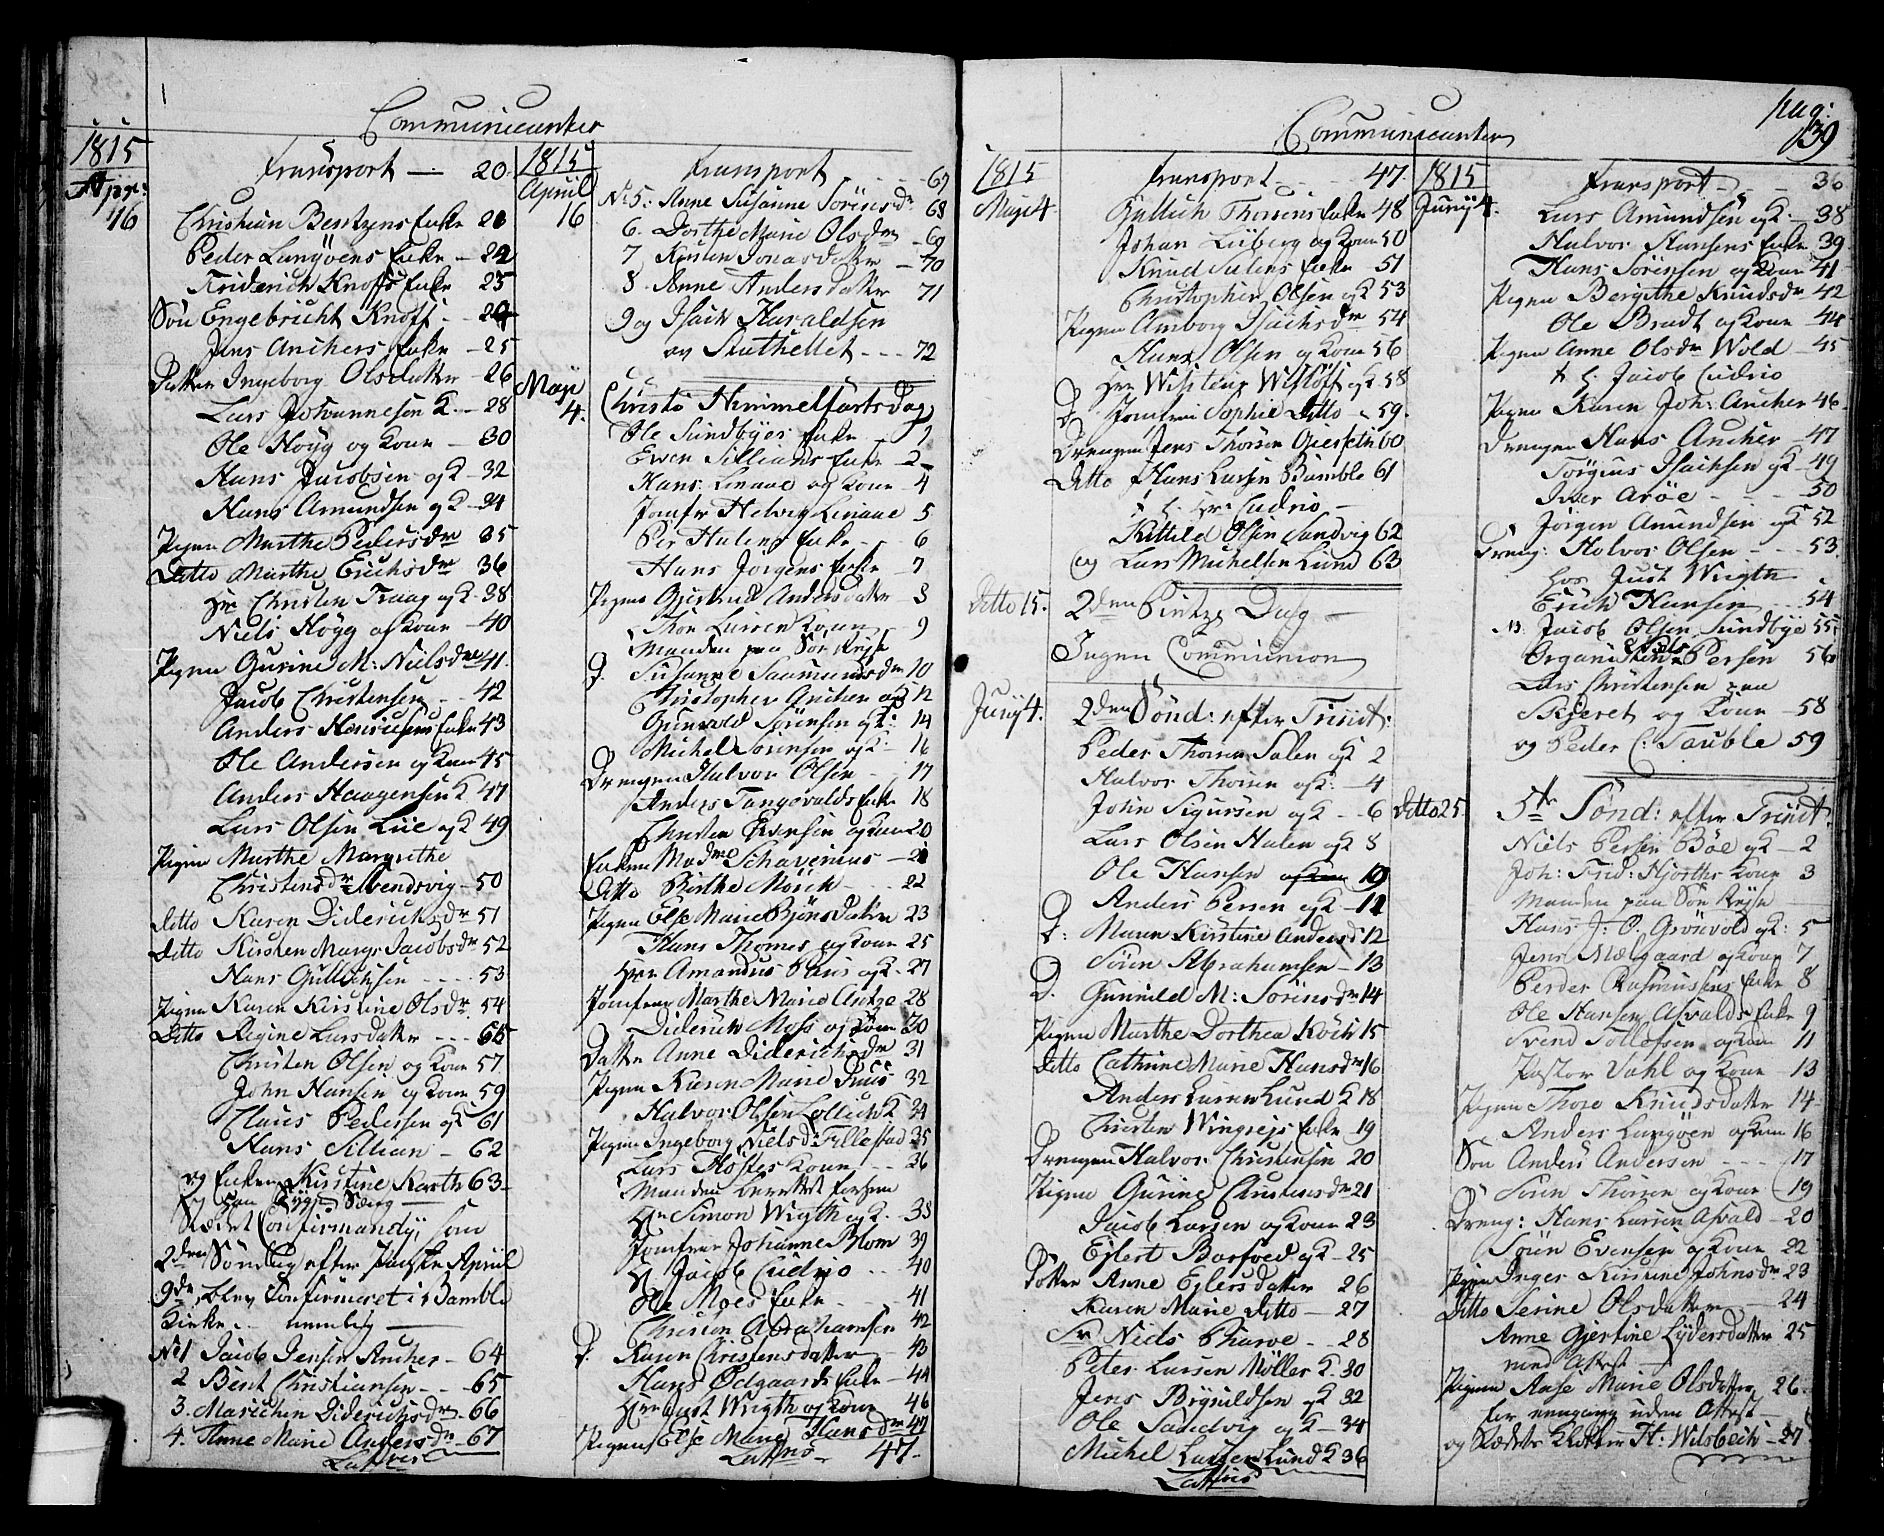 Communicanter
1815
Apr:
16
Transport — 20.
Christian Bentzens Enke 21
Peder Langöens Enke — 22
Friderich Knoffs Enke 23
Sön Engebricht Knoff — 24
Jens Anchers Enke — 25
Datter Ingeborg Olsdatter 26
Lars Johannesen K. — 28
Ole Höyg og Kone — 30
Hans Jacobsen og K — 32
Hans Amundsen og K — 34
Pigen Marthe Pedersdr 35
Ditto Marthe Erichsdr 36
Hr Christen Traag og K — 38
Niels Höyg og Kone — 40
Pigen Gurine M: Nielsdr 41.
Jacob Christensen — 42
Anders Enke 43
Ole Andersen og Kone 45
Anders Haagensen K 47
Lars Olsen Lüe og K 49
Pigen Marthe Margrethe
Christensdr Stendsvig — 50
Ditto Karen Diderichsdr 51
Ditto Kirsten Margr Jacobsdr 52
Hans Gullichsen — 53
Pigen Karen Kirstine Olsdr. 54
Ditto Regine Larsdatter — 55
Christen Olsen og Kone 57
John Hansen og Kone 59
Claus Pedersen og K 61
Hans Sillian — 62
og Enken Kirstine Karth 63
og paa Syge Seng —
Stædet Confirmandy, som
2den Söndag efter Paaske Apriil
9de, blev Confirmeret i Bamble
Kirke — nemlig —
No 1 Jacob Jensen Ancher — 64
2 Bent Christiansen — 65
3. Marichen Diderichsdr — 66
4. Anne Marie Andersdr — 67
Latus
1815
April
16
Transport — 67
No 5. Anne Susanne Sörensdr 68
6. Dorthe Marie Olsdr — 69
7 Kirsten Jonasdatter — 70
8. Anne Andersdatter 71
9 og Isach Haraldsen
ov Stathellet — 72
Maji
4.
Christi Himmelfartsdag
Ole Sundbyes Enke — 1
Even Sillians Enke — 2
Hans Linaae og Kone — 4
Jomfr Helvig Linaae 5
Per Halens Enke — 6
Hans Jorgens Enke — 7
Pigen Gjertrud Andersdatter 8
Thor Larsen Kone 9
Manden paa Söe Rejse
D. Susanne Saamundsdr 10
Christopher Ancher og K 12
Gunvald Sörensen og K: 14
Michel Sörensen og K. 16
Drengen Halvor Olsen — 17
Anders Tangvalds Enke 18
Christen Evensen og Kone 20
Enken Madme Schavenius — 21
Ditto Birthe Mörch — 22
Pigen Else Marie Bjönsdatter 23
Hans Thomes og Kone 25
Herr Amandus Paus og K. 27
Jomfrue Marthe Marie Antze 28
Diderich Moss og Kone 30
Datter Anne Diderichsdr 31
Pigen Karen Marie Paus 32
Halvor Olsen K 34
Pigen Ingeborg Nielsd: Fillestad 35
Lars Flöstes Kone — 36
Manden berettet forhen
Hr Simon Wrigth og K. 38
Jomfrue Johanne Blom 39
Hr Jacob Cudrio — 40
Ole Moes Enke — 41
Christen Abrahamsen 42
D. Karen Christensdatter 43
Hans Ödgaards Enke — 44
Herr Just Wrigth og Kone 46
Pigen Else Marie Hansdr 47
Latus — 47.
Communicanter
pag:
139
1815
Maji 4
Transport — 47.
Gullich Thorsens Enke 48
Johan Liiberg og Kone 50
Knud Salens Enke 51
Christopher Olsen og K 53
Pigen Amborg Isachsdr 54
Hans Olsen og Kone 56
Herr Wisting Wislöff og K 58
D Jomfrue Sophie Ditto — 59.
Drengen Jens Thorsen Gierseth 60
Ditto Hans Larsen Bamble 61
t. h. Hr: Cudrio —
Kittild Olsen Sandvig 62
og Lars Michelsen Lund 63
Ditto 15.
2den Pintze Dag —
Ingen Communion
Junj 4.
2den Sönd: efter Trinit:
Peder Thorsen Salen og K 2
Halvor Thorsen og K: — 4
John Sigursen og K — 6
Lars Olsen Halen og K 8
Ole Hansen og Kone 10
Anders Persen og K — 11
D: Maren Kirstine Andersd 12
Sören Abrahamsen — 13
D. Gunnild M: Sörensdr 14
Pigen Marthe Dorthea Köch 15
Ditto Cathrine Marie Hansdr 16
Anders Larsen Lund K 18
Christen Wingrejs Enke 19
Drengen Halvor Christensen 20
Pigen Gurine Christensdr 21
Jacob Larsen og Kone 23
Ejlert Barfoed og K — 25
Datter Anne Ejlersdatter 26
Karen Marie Ditto — 27
Sr Niels Tharve — 28
Peter Larsen Möller K 30
Jens Brynildsen og K 32
Ole Sandvig og K — 34
Michel Larsen Lund K 36
Latus
1815
Junij 4.
Transport — 36
Lars Amundsen og K — 38
Halvor Hansens Enke 39
Hans Sörensen og Kone 41
Pigen Bergithe Knudsdr 42
Ole Brudt og Kone — 44
Pigen Anne Olsdr Wold — 45
t. h. Jacob Cudrio
Pigen Karen Joh: Ancher 46
Drengen Hans Ancher — 47
Törgius Isachsen og K — 49
Iver Aröe — 50
Jörgen Amundsen og K 52
Dreng: Halvor Olsen — 53
hos Just Wrigth
Erich Hansen — 54
Jacob Olsen Sundbye 55
Organisten Niels Persen 56
Lars Christensen paa
Skjeret og Kone — 58
og Peder C: Tauble 59
Ditto 25.
5te Sönd: efter Trinit.
Niels Persen Böe og K — 2
Joh: Frid: Hjorths Kone 3
Manden paa Söe Rejse
Hans J: P. Grönvold og K: 5
Jens Mælgaard og Kone 7
Perder Rasmussens Enke 8
Ole Hansen Asvalds Enke 9
Svend Tollefsen og Kone 11
Pastor Dahl og Kone 13
Pigen Thore Knudsdatter 14
Anders Langöen og Kone 16
Sön Anders Andersen — 17
Sören Thorsen og Kone 19
Dreng: Hans Larsen Asvald — 20
Sören Evensen og Kone 22
Pigen Inger Kirstine Johnsdr 23
Ditto Serine Olsdatter — 24
Anne Gjertine Lydersdatter 25
med Attest —
Pigen Aase Marie Olsdatter 26.
for nengang uden Attest —
og Stædets Klokker H: Wilsbech — 27